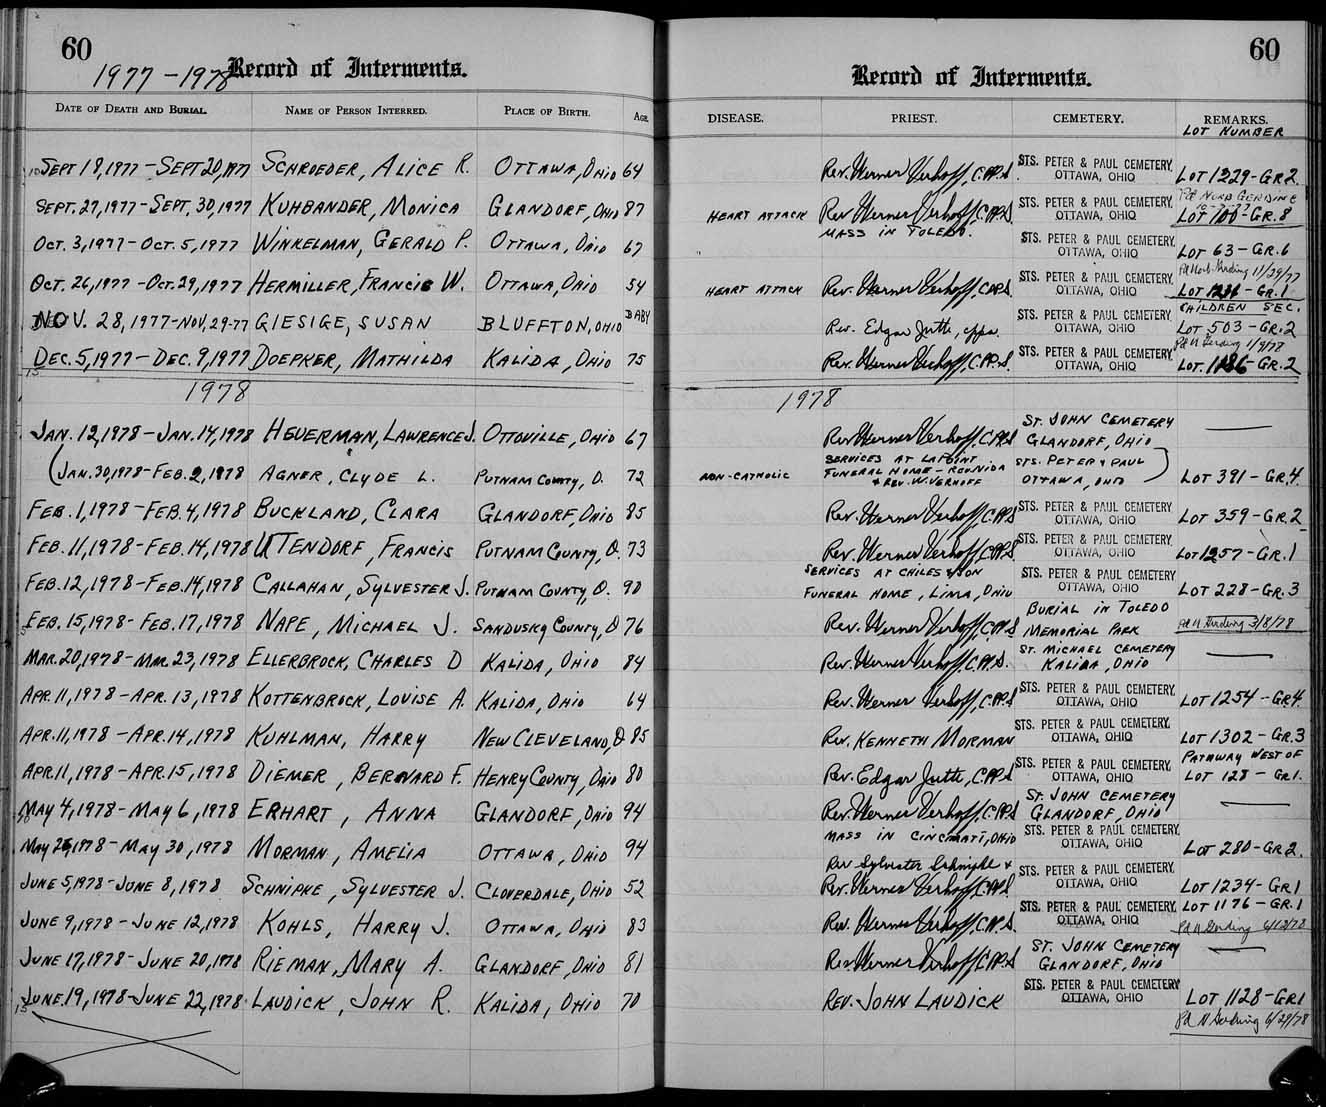 60
1977 - 1978 Record of Interments.
DATE OF DEATH AND BURIAL. NAME OF PERSON INTERRED. PLACE OF BIRTH. AGE.
SEPT 18, 1977 - SEPT 20, 1977 SCHROEDER, ALICE R. OTTAWA, OHIO 64
SEPT. 27, 1977 - SEPT, 30, 1977 KUHBANDER, MONICA GLANDORF, OHIO 87
OCT. 3, 1977 - OCT. 5, 1977 WINKELMAN, GERALD P. OTTAWA, OHIO 67
OCT. 26, 1977 - OCT. 29, 1977 HERMILLER, FRANCIS W. OTTAWA, OHIO 54
NOV. 28, 1977 - NOV. 29-77 GIESIGE, SUSAN BLUFFTON, OHIO BABY
DEC. 5, 1977 - DEC. 9, 1977 DOEPKER, MATHILDA KALIDA, OHIO 75
15
1978
JAN. 12, 1978 - JAN. 14, 1978 HEUERMAN, LAWRENCE J. OTTOVILLE, OHIO 67
(JAN. 30, 1978 - FEB. 2, 1978 AGNER, CLYDE L. PUTNAM COUNTY, O. 72
FEB. 1, 1978 - FEB. 4, 1978 BUCKLAND, CLARA GLANDORF, OHIO 85
FEB. 11, 1978 - FEB. 14, 1978 UTTENDORF, FRANCIS PUTNAM COUNTY, O. 73
FEB. 12, 1978 - FEB. 14, 1978 CALLAHAN, SYLVESTER J. PUTNAM COUNTY, O. 90
FEB. 15, 1978 - FEB. 17, 1978 NAPE, MICHAEL J. SANDUSKY COUNTY, O 76
MAR. 20, 1978 - MAR. 23, 1978 ELLERBROCK, CHARLES D KALIDA, OHIO 84
APR. 11, 1978 - APR. 13, 1978 KOTTENBROCK, LOUISE A. KALIDA, OHIO 64
APR. 11, 1978 - APR. 14, 1978 KUHLMAN, HARRY NEW CLEVELAND, O 85
APR. 11, 1978 - APR. 15, 1978 DIEMER, BERNARD F. HENRY COUNTY, OHIO 80
MAY 4, 1978 - MAY 6, 1978 ERHART, ANNA GLANDORF, OHIO 94
MAY 1978 - MAY 30, 1978 MORMAN, AMELIA OTTAWA, OHIO 94
JUNE 5, 1978 - JUNE 8, 1978 SCHNIPKE, SYLVESTER J. CLOVERDALE, OHIO 52
JUNE 9, 1978 - JUNE 12, 1978 KOHLS, HARRY J. OTTAWA, OHIO 83
JUNE 17, 1978 - JUNE 20, 1978 RIEMAN, MARY A. GLANDORF, OHIO 81
JUNE 19, 1978 - JUNE 22, 1978 LAUDICK, JOHN R. KALIDA, OHIO 70
15
60
Record of Interments.
DISEASE. PRIEST. CEMETERY. REMARKS.
LOT NUMBER
Rev. Werner Verhoff, C.PP.S STS. PETER & PAUL CEMETERY, OTTAWA, OHIO LOT 1229 - GR 2.
Pd NORB GERDING
HEART ATTACK Rev. Werner Verhoff, C.PP.S. STS. PETER & PAUL CEMETERY, OTTAWA, OHIO LOT 100 - GR. 8
MASS IN TOLEDO. STS. PETER & PAUL CEMETERY, OTTAWA, OHIO LOT 63 - GR. 6
Pd Norb Gerding 11/29/77
HEART ATTACK Rev. Werner Verhoff, C.PP.S. STS. PETER & PAUL CEMETERY, OTTAWA, OHIO LOT - GR. 1
CHILDREN SEC.
Rev. Edgar Jutte, cpps. STS. PETER & PAUL CEMETERY, OTTAWA, OHIO LOT 503 - GR. 2
Pd N Gerding 1/9/78
Rev. Werner Verhoff, C.PP.S. STS. PETER & PAUL CEMETERY, OTTAWA, OHIO LOT. 1186 - GR. 2
1978
Rev Werner Verhoff, C.PP.S ST. JOHN CEMETERY GLANDORF, OHIO
NON-CATHOLIC SERVICES AT LAPOINT FUNERAL HOME - REV. NIDA & REV. W. VERHOFF STS. PETER & PAUL OTTAWA, OHIO ) LOT 391 - GR. 4
Rev. Werner Verhoff, C.PP.S STS. PETER & PAUL CEMETERY, OTTAWA, OHIO LOT 359 - GR. 2
Rev. Werner Verhoff, C.PP.S. STS. PETER & PAUL CEMETERY, OTTAWA, OHIO LOT 1257 - GR. 1
SERVICES AT CHILES & SON FUNERAL HOME, LIMA, OHIO STS. PETER & PAUL CEMETERY, OTTAWA, OHIO LOT 228 - GR. 3
Rev. Werner Verhoff, C.PP.S BURIAL IN TOLEDO MEMORIAL PARK Pd N. Gerding 3/8/78
Rev. Werner Verhoff, C.PP.S. ST. MICHAEL CEMETERY KALIDA, OHIO
Rev. Werner Verhoff, C.PP.S STS. PETER & PAUL CEMETERY, OTTAWA, OHIO LOT 1254 - GR 4.
Rev. KENNETH MORMAN STS. PETER & PAUL CEMETERY, OTTAWA, OHIO LOT 1302 - GR. 3
Rev. Edgar Jutte, C.PP.S STS. PETER & PAUL CEMETERY, OTTAWA, OHIO PATHWAY WEST OF LOT 128 - GR 1.
Rev. Werner Verhoff, C.PP.S ST. JOHN CEMETERY GLANDORF, OHIO
MASS IN CINCINNATI, OHIO STS. PETER & PAUL CEMETERY, OTTAWA, OHIO LOT 280 - GR 2.
Rev Sylvester Schnipke &
Rev. Werner Verhoff, C.PP.S. STS. PETER & PAUL CEMETERY, OTTAWA, OHIO LOT 1234 - GR 1
Rev. Werner Verhoff, C.PP.S. STS. PETER & PAUL CEMETERY, OTTAWA, OHIO LOT 1176 - GR. 1
Pd N Gerding 6/12/78
Rev. Werner Verhoff, C.PP.S ST. JOHN CEMETERY GLANDORF, OHIO
REV. JOHN LAUDICK STS. PETER & PAUL CEMETERY OTTAWA, OHIO LOT 1128 - GR 1
Pd N Gerding 6/29/78